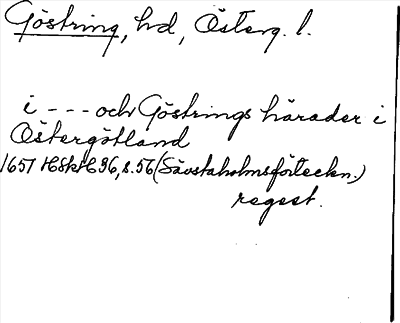 Göstring, hd, Österg. l.
i - - - och Göstrings härader i
Östergötland
1657 HSkH 36, s. 56 (Sävstaholmsförteckn.)
regest.